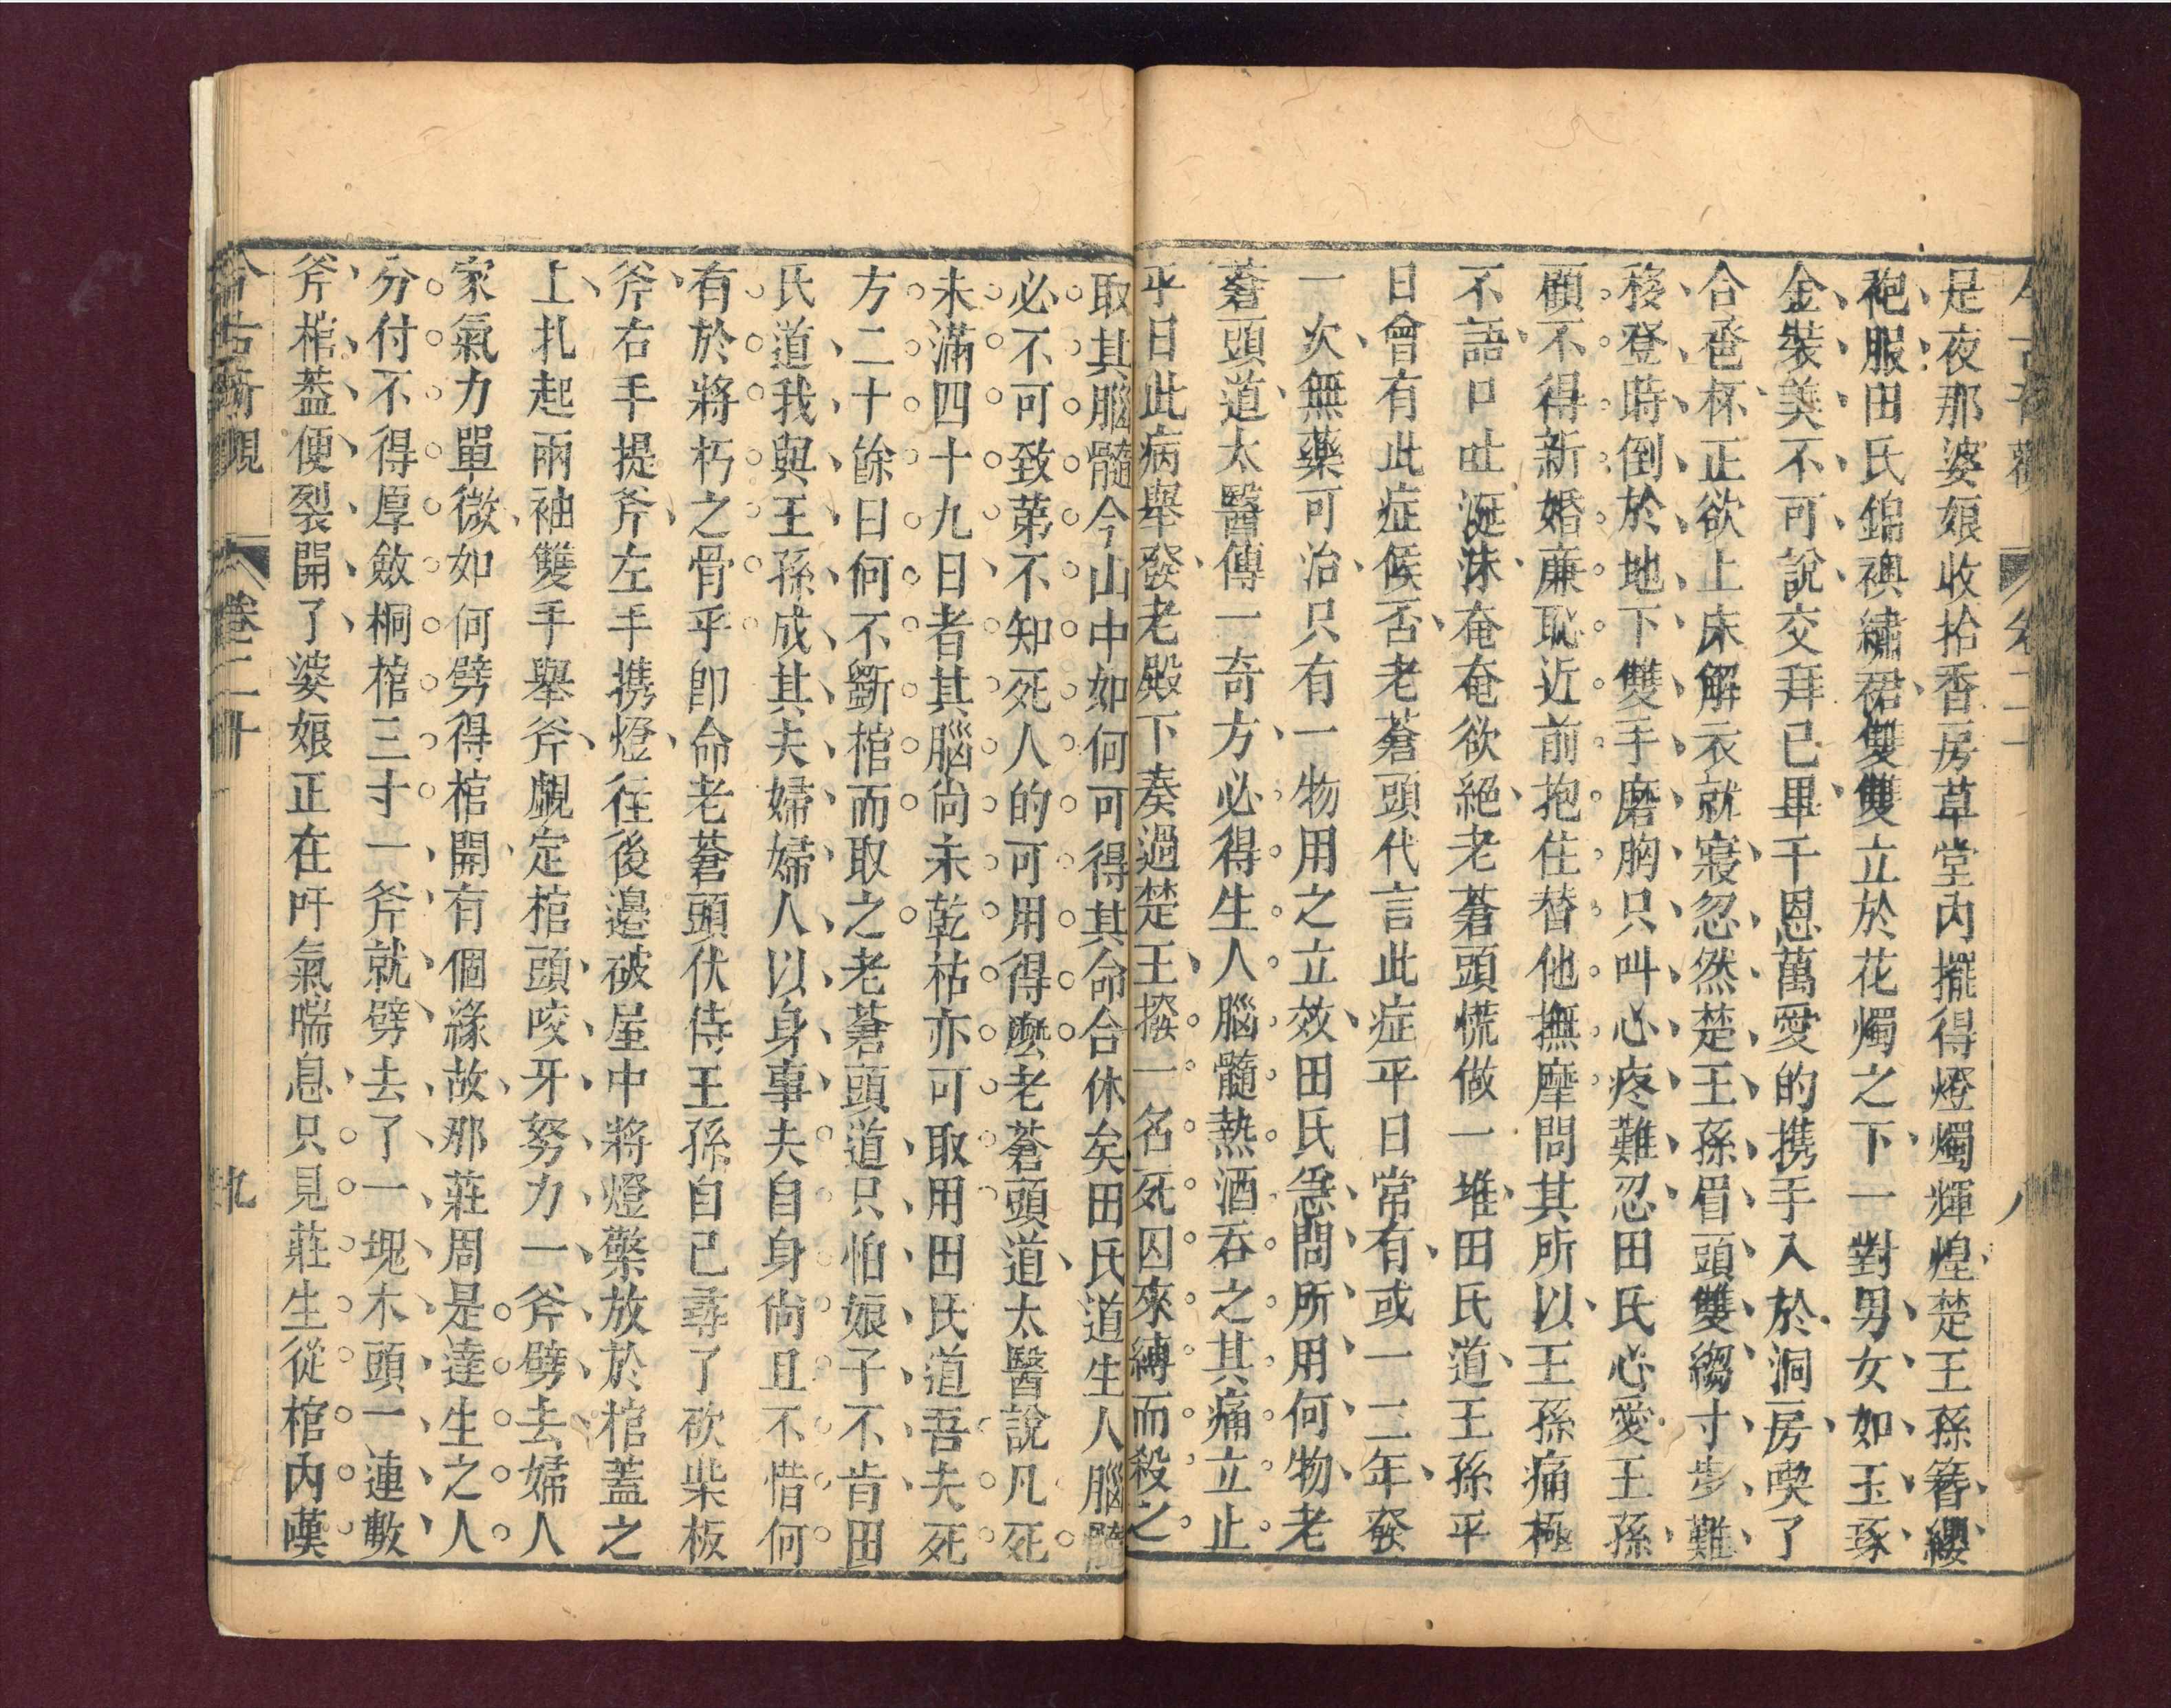 今古奇觀 卷二十 八
是夜那婆娘收拾香房草堂內擺得燈燭輝煌楚王孫簪纓
袍服田氏錦襖繡裙雙雙立於花燭之下一對男女如玉琢
金裝美不可說交拜已畢千恩萬愛的携手入於洞房喫了
合卺杯正欲上床解衣就寢忽然楚王孫眉頭雙縐寸步難
移登時倒於地下雙手磨胸只叫心疼難忍田氏心愛王孫
顧不得新婚廉恥近前抱住替他撫摩問其所以王孫痛極
不語口吐涎沫奄奄欲絕老蒼頭慌做一堆田氏道王孫平
日曾有此症候否老蒼頭代言此症平日常有或一二年發
一次無藥可治只有一物用之立效田氏急問所用何物老
蒼頭道太醫傳一奇方必得生人腦髓熱酒吞之其痛立止
平日此病舉發老殿下奏過楚王撥一名死囚來縛而殺之
取其腦髓今山中如何可得其命合休矣田氏道生人腦髓
必不可致第不知死人的可用得麼老蒼頭道太醫說凡死
未滿四十九日者其腦尚未乾枯亦可取用田氏道吾夫死
方二十餘日何不斲棺而取之老蒼頭道只怕娘子不肯田
氏道我與王孫成其夫婦婦人以身事夫自身尚且不惜何
有於將朽之骨乎卽命老蒼頭伏侍王孫自己尋了砍柴板
斧右手提斧左手携燈往後邊破屋中將燈檠放於棺蓋之
上扎起兩袖雙手舉斧覷定棺頭咬牙努力一斧劈去婦人
家氣力單微如何劈得棺開有個緣故那莊周是達生之人
分付不得厚斂桐棺三寸一斧就劈去了一塊木頭一連數
斧棺蓋便裂開了婆娘正在吁氣喘息只見莊生從棺內嘆
今古奇觀 卷二十 九